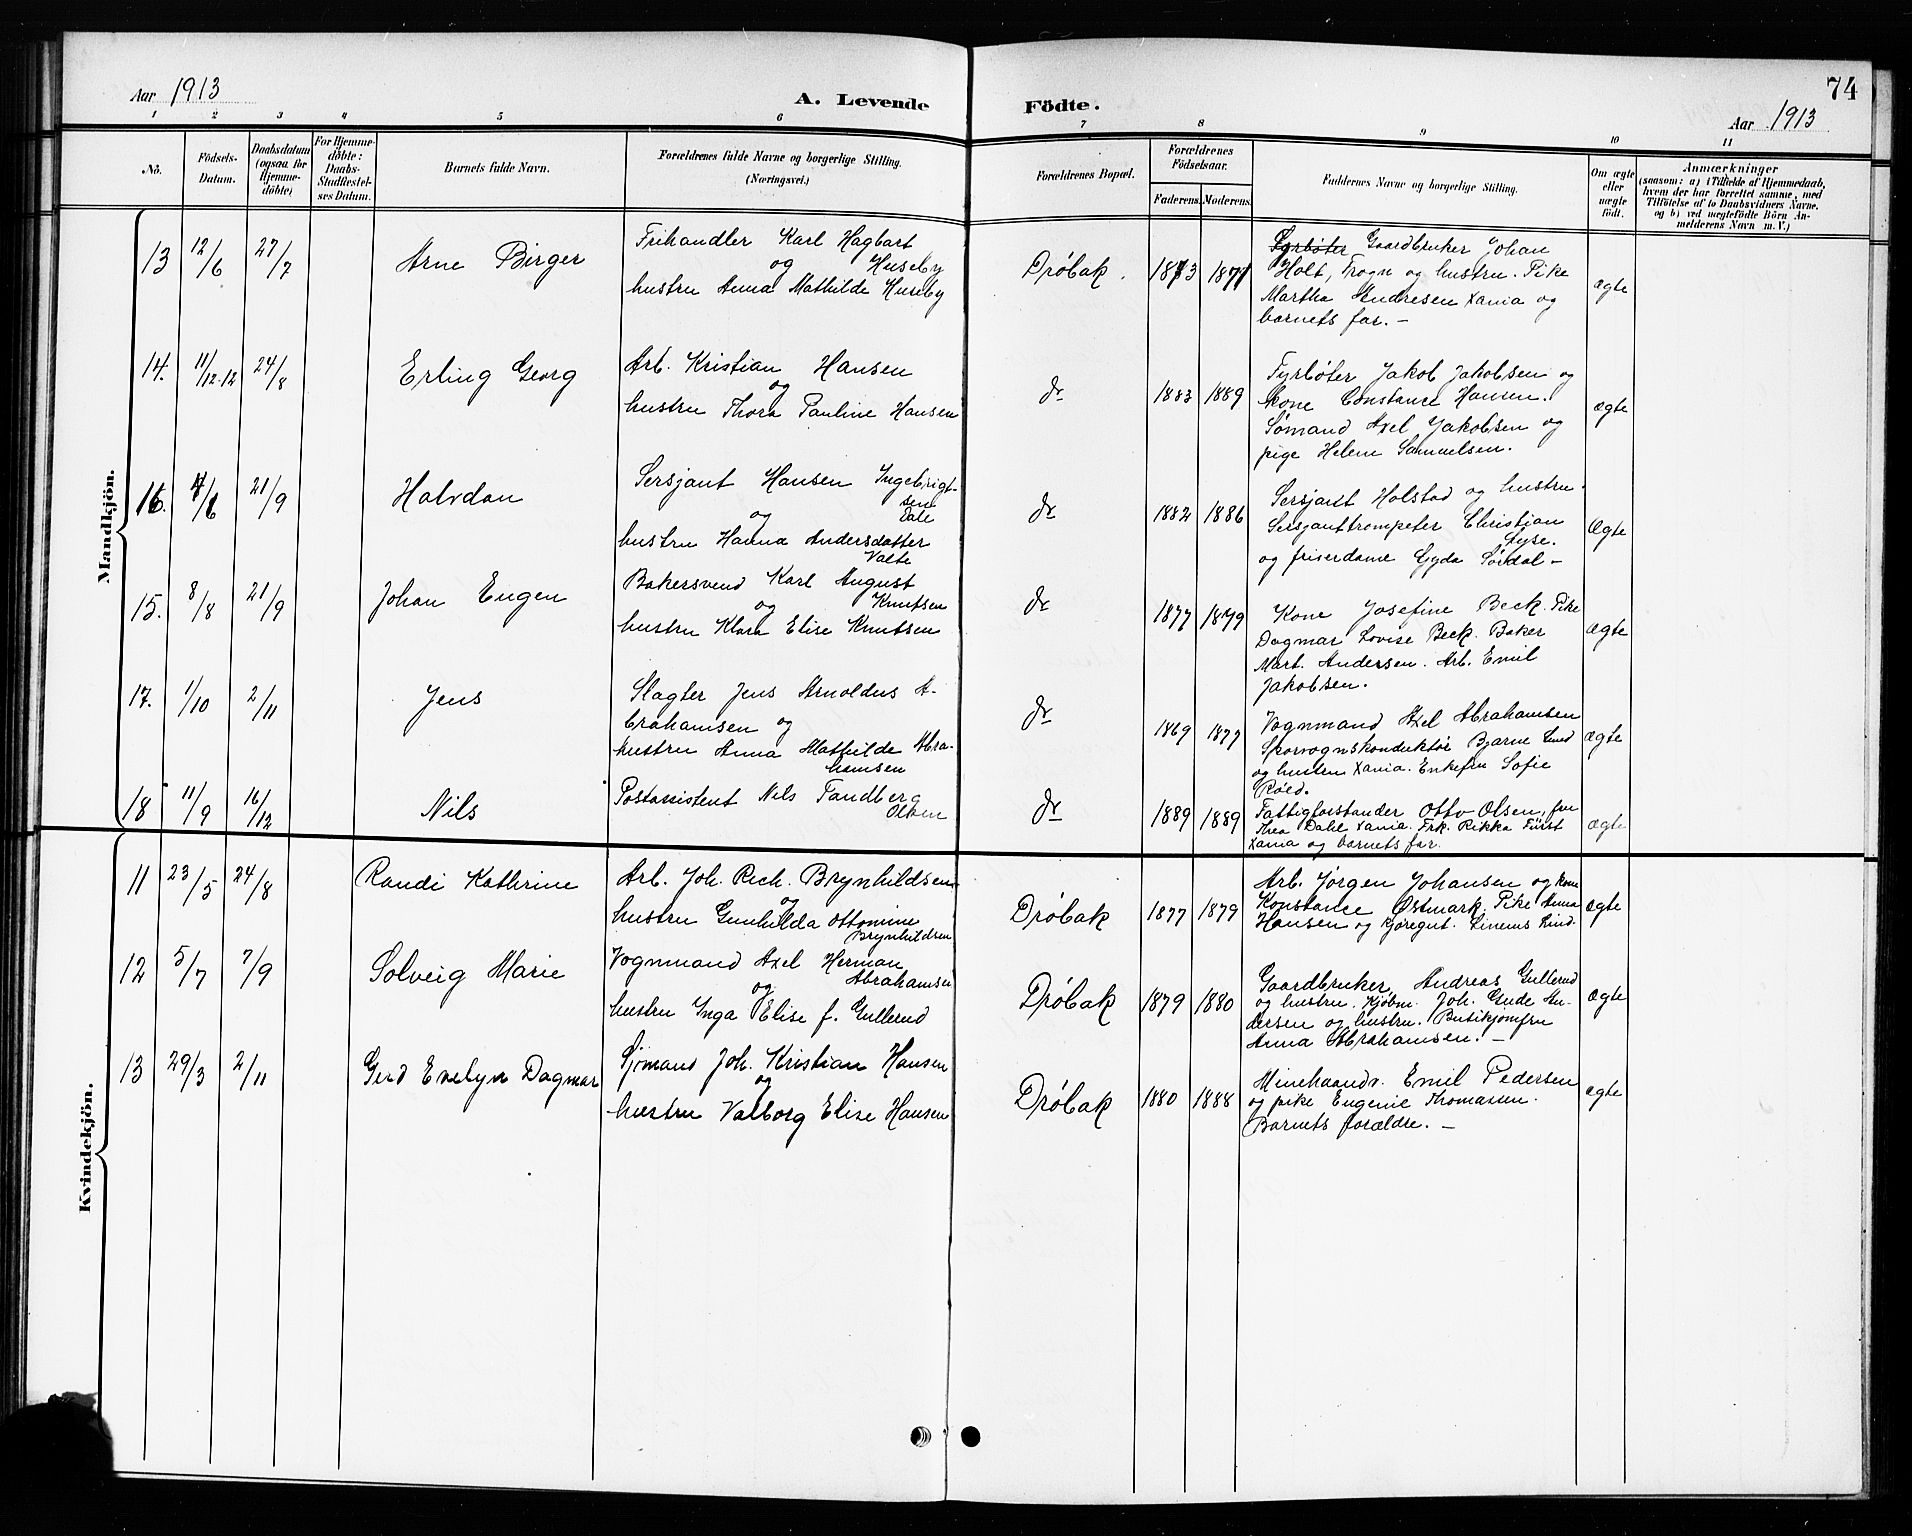 Aar 1913
A. Levende
Födte.
74
Aar 1913
1 2 3 4 5 6 7 8 9 10 11
No.
Födsels-
Datum.
Daabsdatum
(ogsaa for
Hjemme-
döbte)
For Hjemme-
döbte:
Daabs-
Stadfæstel-
ses Datum.
Barnets fulde Navn.
Forældrenes fulde Navne og borgerlige Stilling.
(Næringsvei.)
Forældrenes Bopæl.
Forældrenes
Födselsaar.
Faderens.
Moderens.
Faddernes Navne og borgerlige Stilling.
Om ægte
eller
uægte
født.
Anmærkninger
(saasom: a) i Tilfælde af Hjemmedaab,
hvem der har forrettet samme, med
Tilföielse af to Daabsvidners Navne.
og b) ved uægtefödte Börn An-
melderens Navn m. V.)
Mandkjön.
13 12/6 27/7 Arne Birger
Frihandler Karl Hagbart
og Huseby
hustru Anna Mathilde Huseby
Drøbak. 1873 1877
Fyrbøter Gaardbruker Johan
Holt, Frogn og hustru. Pike
Martha Andresen Xania og
barnets far. —
ægte
14. 11/12-12 24/8 Erling Georg
Arb. Kristian Hansen
og
hustru Thora Pauline Hansen
do 1883 1889
Fyrbøter Jakob Jakobsen og
kone Constance Hansen.
Sømand Axel Jakobsen og
pige Helene Samuelsen.
ægte
16. 4/6 21/9 Halvdan
Sersjant Hansen Ingebrigt-
sen
og Dale
hustru Hanna Andersdatter
Valte
do 1882 1886
Sersjant Holstad og hustru.
Sersjanttrompeter Christian
Lyse.
og friserdame Gyda Sørdal —
Ægte
15. 8/8 21/9 Johan Eugen
Bakersvend Karl August
og Knutsen
hustru Klara Elise Knutsen
do 1877 1879
Kone Josefine Beck. Pike
Dagmar Lovise Beck. Baker
Mart. Andersen. Arb. Emil
Jakobsen.
Ægte
17. 1/10 2/11 Jens
Slagter Jens Arnoldus A-
brahamsen og
hustru Anna Mathilde Abra-
hamsen
do 1869 1877
Vognmand Axel Abrahamsen
Sporvognskonduktør Bjarne Lund
og hustru Xania. Enkefru Sofie
Røed.
ægte
18 11/9 16/12 Nils
Postassistent Nils Tandberg
Olsen
do 1889 1889
Fattigforstander Otto Olsen, fru
Thea Dahl Xania. Frk. Rikka Fürst
Xania og barnets far.
ægte
Kvindekjön.
11 23/5 24/8 Randi Kathrine
Arb. Joh. Rich. Brynhildsen
og
hustru Gunhilda Ottomine
Brynhildsen
Drøbak 1877 1879
Arb. Jørgen Johansen og kone
Konstance Østmark. Pike Anna
Hansen og kjøregut. Linerus Lind.
ægte
12 5/7 7/9 Solveig Marie
Vognmand Axel Herman
og Abrahamsen
hustru Inga Elise f. Gullerud
Drøbak 1879 1880
Gaardbruker Andreas Gullerud
og hustru. Kjøbm. Joh. Gude An-
dersen og hustru. Butikjomfru
Anna Abrahamsen. —
ægte
13 29/3 2/11 Gerd Evelyn Dagmar
Sjømand Joh. Kristian Hansen
og
hustru Valborg Elise Hansen
Drøbak 1880 1888
Minehaandv. Emil Pedersen
og pike Eugenie Thomassen.
Barnets forældre. —
ægte